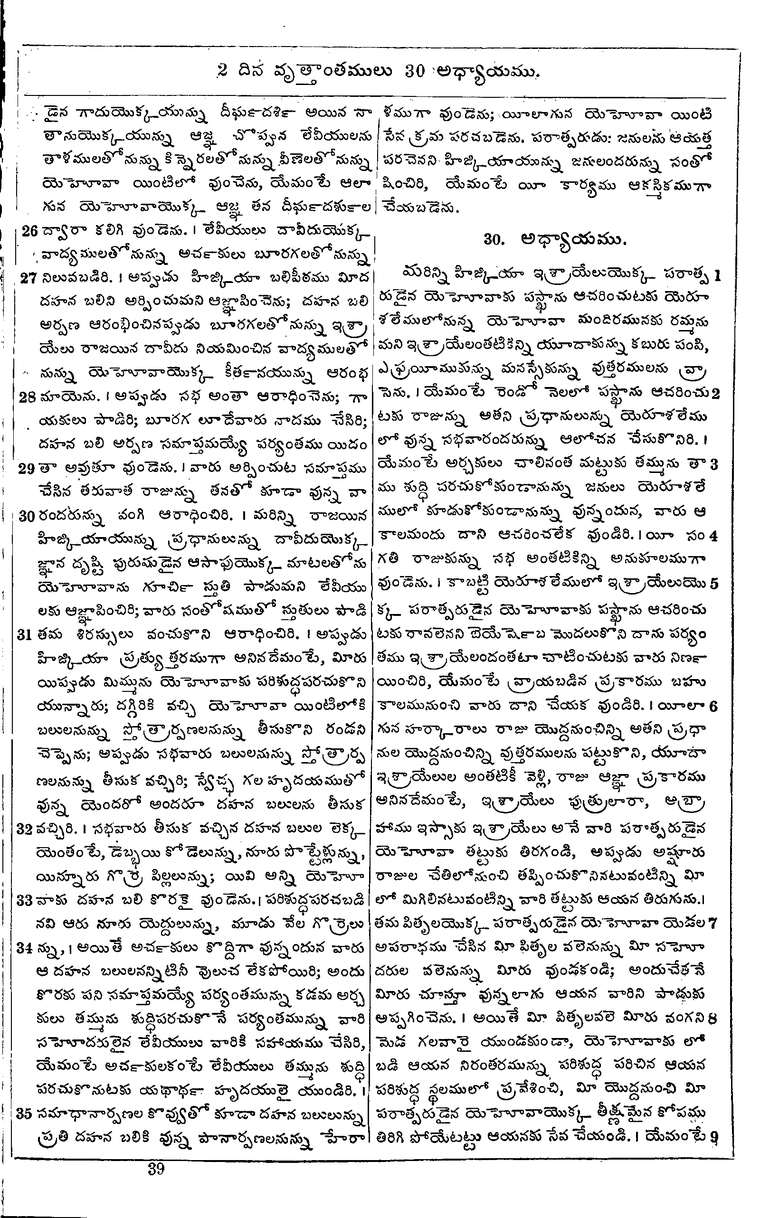 2 దిన వృత్తాంతములు 30 అధ్యాయము.
డైన గాదుయొక్కయున్న దీర్ఘదర్శి అయిన నా
తానుయొక్కయున్ను ఆజ్ఞ చొప్పున లేవీయులను
తాళములతోనున్ను కిన్నెరలతోనున్ను వీణెలతోనున్ను
యెహోవా యింటిలో వుంచెను, యేమంటే ఆలా
గున యెహోవాయొక్క ఆజ్ఞ తన దీర్ఘదర్శుకుల
26 ద్వారా కలిగి వుండెను. । లేవీయులు దావీదుయొక్క
వాద్యములతోనున్ను అర్చకులు బూరగలతోనున్ను
27 నిలువబడిరి. । అప్పుడు హిజ్కియా బలిపీఠము మీద
దహన బలిని అర్పించుమని ఆజ్ఞాపించెను; దహన బలి
అర్పణ ఆరంభించినప్పుడు బూరగలతోనున్ను ఇశ్రా
యేలు రాజయిన దావీదు నియమించిన వాద్యములతో
నున్ను యెహోవాయొక్క కీర్తనయున్ను ఆరంభ
28 మాయెను. । అప్పుడు సభ అంతా ఆరాధించెను; గా
యకులు పాడిరి; బూరగ లూదేవారు నాదము చేసిరి;
దహన బలి అర్పణ సమాప్తమయ్యే పర్యంతము యిదం
29 తా అవుతూ వుండెను. । వారు అర్పించుట సమాప్తము
చేసిన తరువాత రాజున్ను తనతో కూడా వున్న వా
30 రందరున్ను వంగి ఆరాధించిరి. । మరిన్ని రాజయిన
హిజ్కియాయున్ను ప్రధానులున్ను దావీదుయొక్క
జ్ఞాన దృష్టి పురుషుడైన ఆసాపుయొక్క మాటలతోను
యెహోవాను గూర్చి స్తుతి పాడుమని లేవీయు
లకు ఆజ్ఞాపించిరి; వారు సంతోషముతో స్తుతులు పాడి
31 తమ శిరస్సులు వంచుకొని ఆరాధించిరి. । అప్పుడు
హిజ్కియా ప్రత్యుత్తరముగా అనినదేమంటే, మీరు
యిప్పుడు మిమ్మును యెహోవాకు పరిశుద్ధపరచుకొని
యున్నారు; దగ్గిరికి వచ్చి యెహోవా యింటిలోకి
బలులనున్ను స్తోత్రార్పణలనున్ను తీసుకొని రండని
చెప్పెను; అప్పుడు సభవారు బలులనున్ను స్తోత్రార్ప
ణలనున్ను తీసుక వచ్చిరి; స్వేచ్ఛ గల హృదయముతో
వున్న యెందరో అందరూ దహన బలులను తీసుక
32 వచ్చిరి. । సభవారు తీసుక వచ్చిన దహన బలుల లెక్క
యెంతంటే, డెబ్భయి కోడెలున్ను, నూరు పొట్టేళ్లున్ను,
యిన్నూరు గొర్రె పిల్లలున్ను; యివి అన్ని యెహో
33 వాకు దహన బలి కొరకై వుండెను. । పరిశుద్ధపరచబడి
నవి ఆరు నూరు యెద్దులున్ను, మూడు వేల గొర్రెలు
34 న్ను, । అయితే అర్చకులు కొద్దిగా వున్నందున వారు
ఆ దహన బలులనన్నిటినీ వొలుచ లేకపోయిరి; అందు
కొరకు పని సమాప్తమయ్యే పర్యంతమున్ను కడమ అర్చ
కులు తమ్మును శుద్ధిపరచుకొనే పర్యంతమున్ను వారి
సహోదరులైన లేవీయులు వారికి సహాయము చేసిరి,
యేమంటే అర్చకులకంటే లేవీయులు తమ్మును శుద్ధి
పరచుకొనుటకు యథార్థ హృదయులై యుండిరి. ।
35 సమాధానార్పణల కొవ్వుతో కూడా దహన బలులున్ను
ప్రతి దహన బలికి వున్న పానార్పణలనున్ను హేరా
ళముగా వుండెను; యీలాగున యెహోవా యింటి
సేవ క్రమ పరచబడెను. పరాత్పరుడు: జనులను ఆయత్త
పరచెనని హిజ్కియాయున్ను జనులందరున్ను సంతో
షించిరి, యేమంటే యీ కార్యము ఆకస్మికముగా
చేయబడెను.
30. అధ్యాయము.
మరిన్ని హిజ్కియా ఇశ్రాయేలుయొక్క పరాత్ప 1
రుడైన యెహోవాకు పస్ఖాను ఆచరించుటకు యెరూ
శలేములోనున్న యెహోవా మందిరమునకు రమ్మను
మని ఇశ్రాయేలంతటికిన్ని యూదాకున్ను కబురు పంపి,
ఎఫ్రాయీముకున్ను మనస్సేకున్ను వుత్తరములను వ్రా
సెను. । యేమంటే రెండో నెలలో పస్ఖాను ఆచరించు 2
టకు రాజున్ను అతని ప్రధానులున్ను యెరూశలేము
లో వున్న సభవారందరున్ను ఆలోచన చేసుకొనిరి. ।
యేమంటే అర్చకులు చాలినంత మట్టుకు తమ్మును తా 3
ము శుద్ధి పరచుకోకుండానున్ను జనులు యెరూశలే
ములో కూడుకోకుండానున్ను వున్నందున, వారు ఆ
కాలమందు దాని ఆచరించలేక వుండిరి. । యీ సం 4
గతి రాజుకున్ను సభ అంతటికిన్ని అనుకూలముగా
వుండెను. । కాబట్టి యెరూశలేములో ఇశ్రాయేలుయొ 5
క్క పరాత్పరుడైన యెహోవాకు పస్ఖాను ఆచరించు
టకు రావలెనని బెయేర్షెబా మొదలుకొని దాను పర్యం
తము ఇశ్రాయేలందంతటా చాటించుటకు వారు నిర్ణ
యించిరి, యేమంటే వ్రాయబడిన ప్రకారము బహు
కాలమునుంచి వారు దాని చేయక వుండిరి. । యీలా 6
గున హర్కారాలు రాజు యొద్దనుంచిన్ని అతని ప్రధా
నుల యొద్దనుంచిన్ని వుత్తరములను పట్టుకొని, యూదా
ఇశ్రాయేలుల అంతటికీ వెళ్లి, రాజు ఆజ్ఞా ప్రకారము
అనినదేమంటే, ఇశ్రాయేలు పుత్రులారా, అబ్రా
హాము ఇస్సాకు ఇశ్రాయేలు అనే వారి పరాత్పరుడైన
యెహోవా తట్టుకు తిరగండి, అప్పుడు అష్షూరు
రాజుల చేతిలోనుంచి తప్పించుకొనినటువంటిన్ని మీ
లో మిగిలినటువంటిన్ని వారి తట్టుకు ఆయన తిరుగును. ।
తమ పితృలయొక్క పరాత్పరుడైన యెహోవా యెడల 7
అపరాధము చేసిన మీ పితృల వలెనున్ను మీ సహో
దరుల వలెనున్ను మీరు వుండకండి; అందుచేతనే
మీరు చూస్తూ వున్నలాగు ఆయన వారిని పాడుకు
అప్పగించెను. । అయితే మీ పితృలవలె మీరు వంగని 8
మెడ గలవారై యుండకుండా, యెహోవాకు లో
బడి ఆయన నిరంతరమున్ను పరిశుద్ధ పరిచిన ఆయన
పరిశుద్ధ స్థలములో ప్రవేశించి, మీ యొద్దనుంచి మీ
పరాత్పరుడైన యెహోవాయొక్క తీక్ష్ణమైన కోపము
తిరిగి పోయేటట్టు ఆయనకు సేవ చేయండి. । యేమంటే 9
39